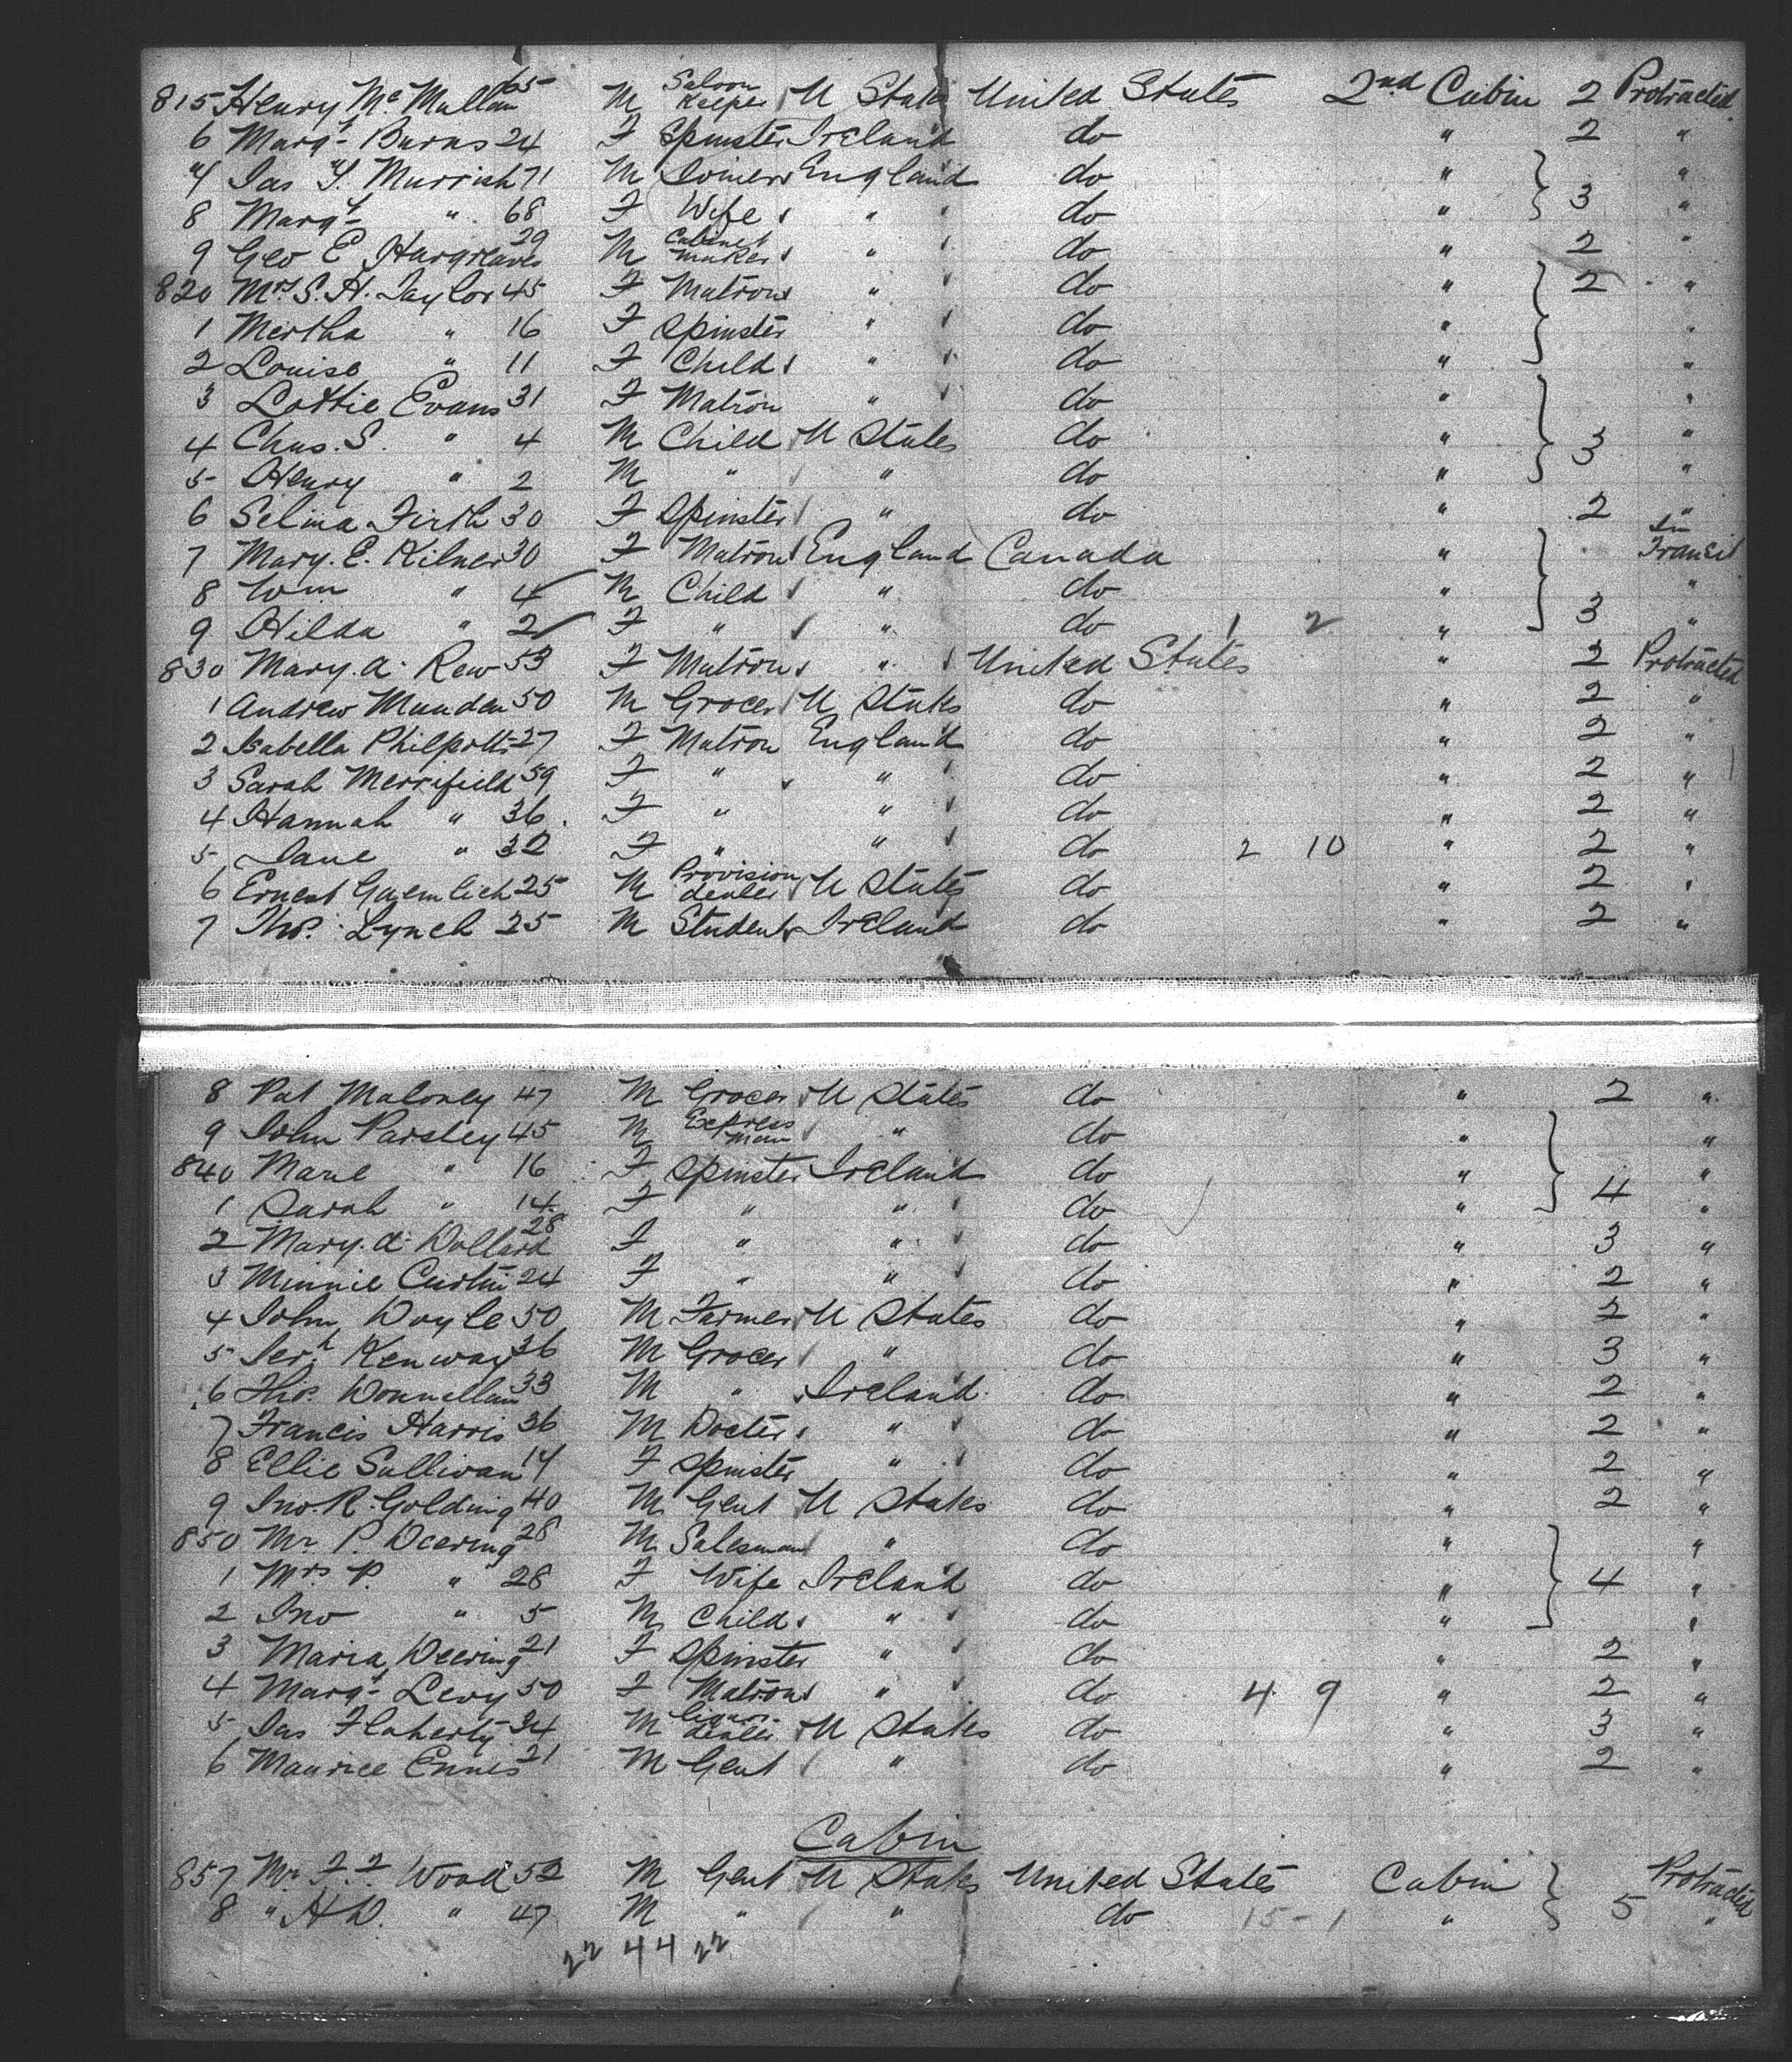 815 Henry McMullan 65 M Saloon Keeper U States United States 2nd Cabin 2 Protracted
6 Margt Burns 24 F Spinster Ireland do " 2 "
7 Jas Y. Murrish 71 M Joiner England do " "
8 Margt " 68 F Wife " do " 3 "
9 Geo E Hargreaves 29 M Cabinet Maker " do " 2 "
820 Mrs S. H. Taylor 45 F Matron " do " 2 "
1 Mertha " 16 F Spinster " do " "
2 Louise " 11 F Child " do " "
3 Lottie Evans 31 F Matron " do " "
4 Chas. S. " 4 M Child U States do " 3 "
5 Henry " 2 M " " do " "
6 Selina Firth 30 F Spinster " do " 2 "
7 Mary. E. Kilner 30 F Matron England Canada " In Transit
8 Wm " 4 M Child " do " "
9 Hilda " 2 F " " do 1 2 " 3 "
830 Mary. A. Rew 53 F Matron " United States " 2 Protracted
1 Andrew Munden 50 M Grocer U States do " 2 "
2 Isabella Philpotts 27 F Matron England do " 2 "
3 Sarah Merrifield 59 F " " do " 2 "
4 Hannah " 36 F " " do " 2 "
5 Jane " 32 F " " do 2 10 " 2 "
6 Ernest Guemlich 25 M Provision dealer U States do " 2 "
7 Thos. Lynch 25 M Student Ireland do " 2 "
8 Pat Maloney 47 M Grocer U States do " 2 "
9 John Parsley 45 M Express Man " do " "
840 Marie " 16 F Spinster Ireland do " "
1 Sarah " 14 F " " do " 4 "
2 Mary. A. Dollard 28 F " " do " 3 "
3 Minnie Curtin 24 F " " do " 2 "
4 John Doyle 50 M Farmer U States do " 2 "
5 Jerh Kenway 36 M Grocer " do " 3 "
6 Thos. Donnellan 33 M " Ireland do " 2 "
7 Francis Harris 36 M Docter " do " 2 "
8 Ellie Sullivan 14 F Spinster " do " 2 "
9 Jno. R. Golding 40 M Gent U States do " 2 "
850 Mr P. Deering 28 M Salesman " do " "
1 Mrs P. " 28 F Wife Ireland do " 4 "
2 Jno " 5 M Child " do " "
3 Maria Deering 21 F Spinster " do " 2 "
4 Margt Levy 50 F Matron " do 4 9 " 2 "
5 Jas Flaherty 34 M Liquor dealer U States do " 3 "
6 Maurice Ennis 21 M Gent " do " 2 "
Cabin
857 Mr F. F. Wood 52 M Gent U States United States Cabin Protracted
8 " H D. " 47 M " " do 15-1 " 5 "
22 44 22